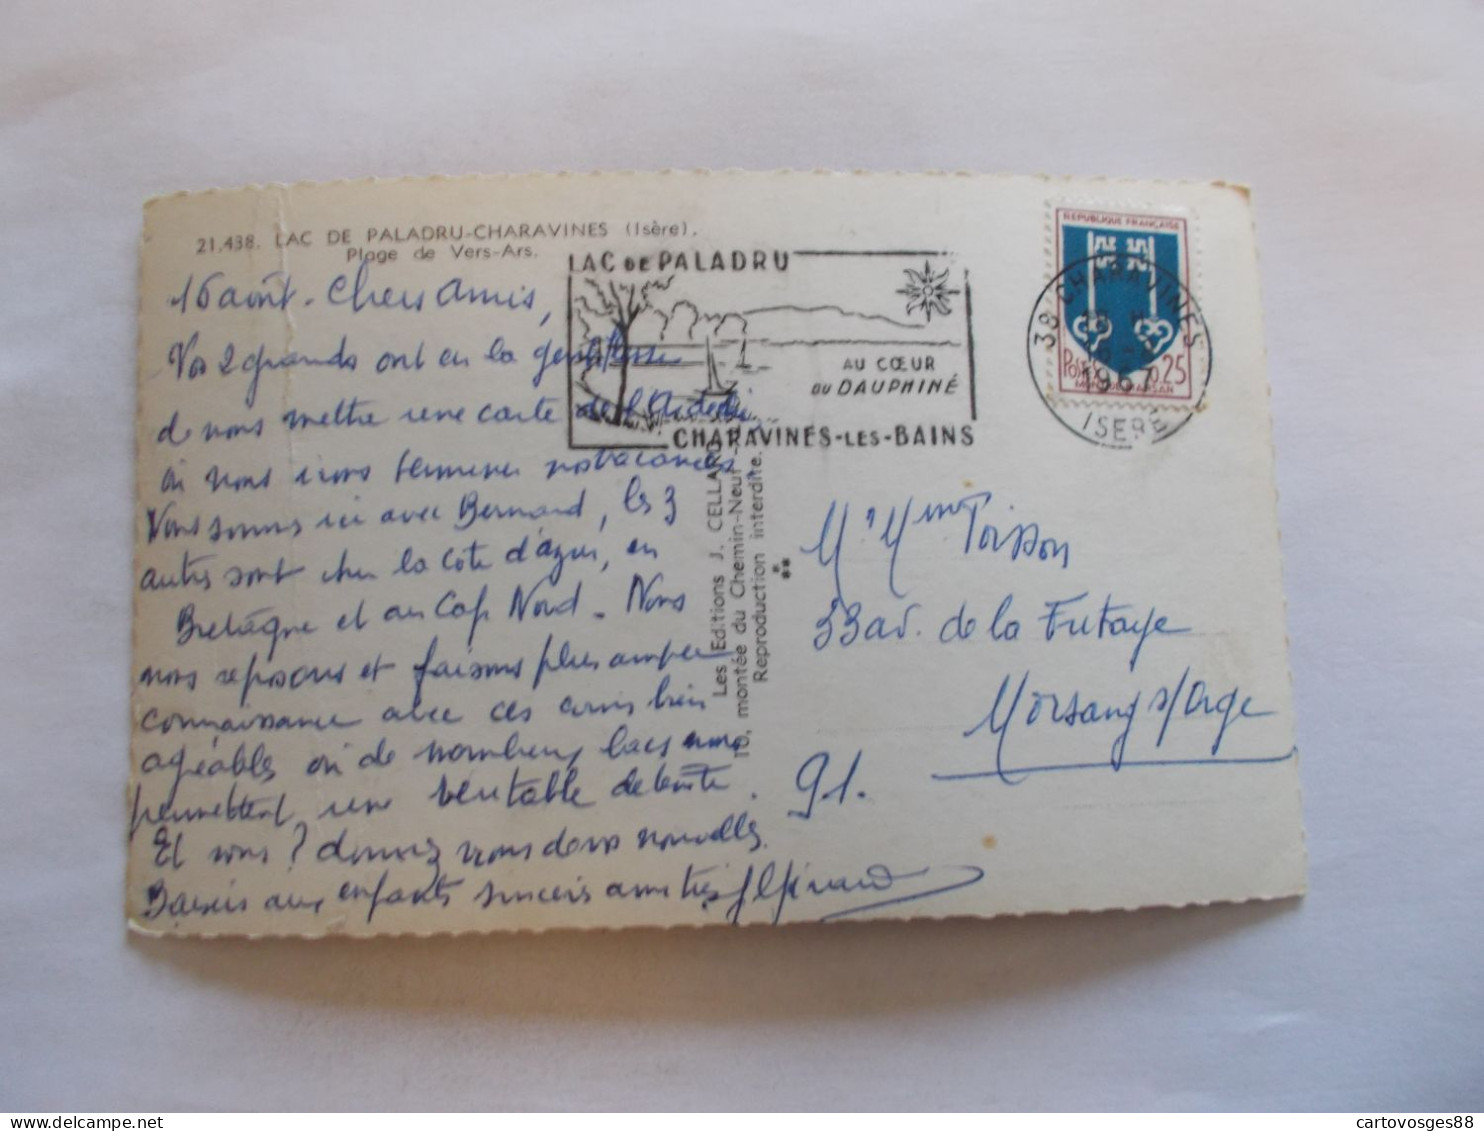 21.438. LAC DE PALADRU-CHARAVINES (Isère).
Plage de Vers-Ars.
16 août - Chers Amis,
Vos 2 grands ont eu la gentillesse
de nous mettre une carte de l'Ardèche,
où nous irons terminer nos vacances
Nous sommes ici avec Bernard, les 3
autres sont chez la cote d'azur, en
Bretagne et au Cap Nord - Nous
nous reposons et faisons plus ample
connaissance avec ces coins bien
agréables où de nombreux lacs nous
permettent une véritable détente.
Et vous? donnez nous de vos nouvelles.
Baisers aux enfants sincères amitiés
LAC DE PALADRU
AU CŒUR
DU DAUPHINÉ
CHARAVINES-LES-BAINS
REPUBLIQUE FRANÇAISE
POSTES 0,25
MONT-DE-MARSAN
38 CHARAVINES
16-8
1967
ISERE
Les Editions J. CELLARD
10, montée du Chemin-Neuf
Reproduction interdite.
M. Mme Poisson
33 av. de la Futaye
Morsang s/Orge
91.
cartovosges88